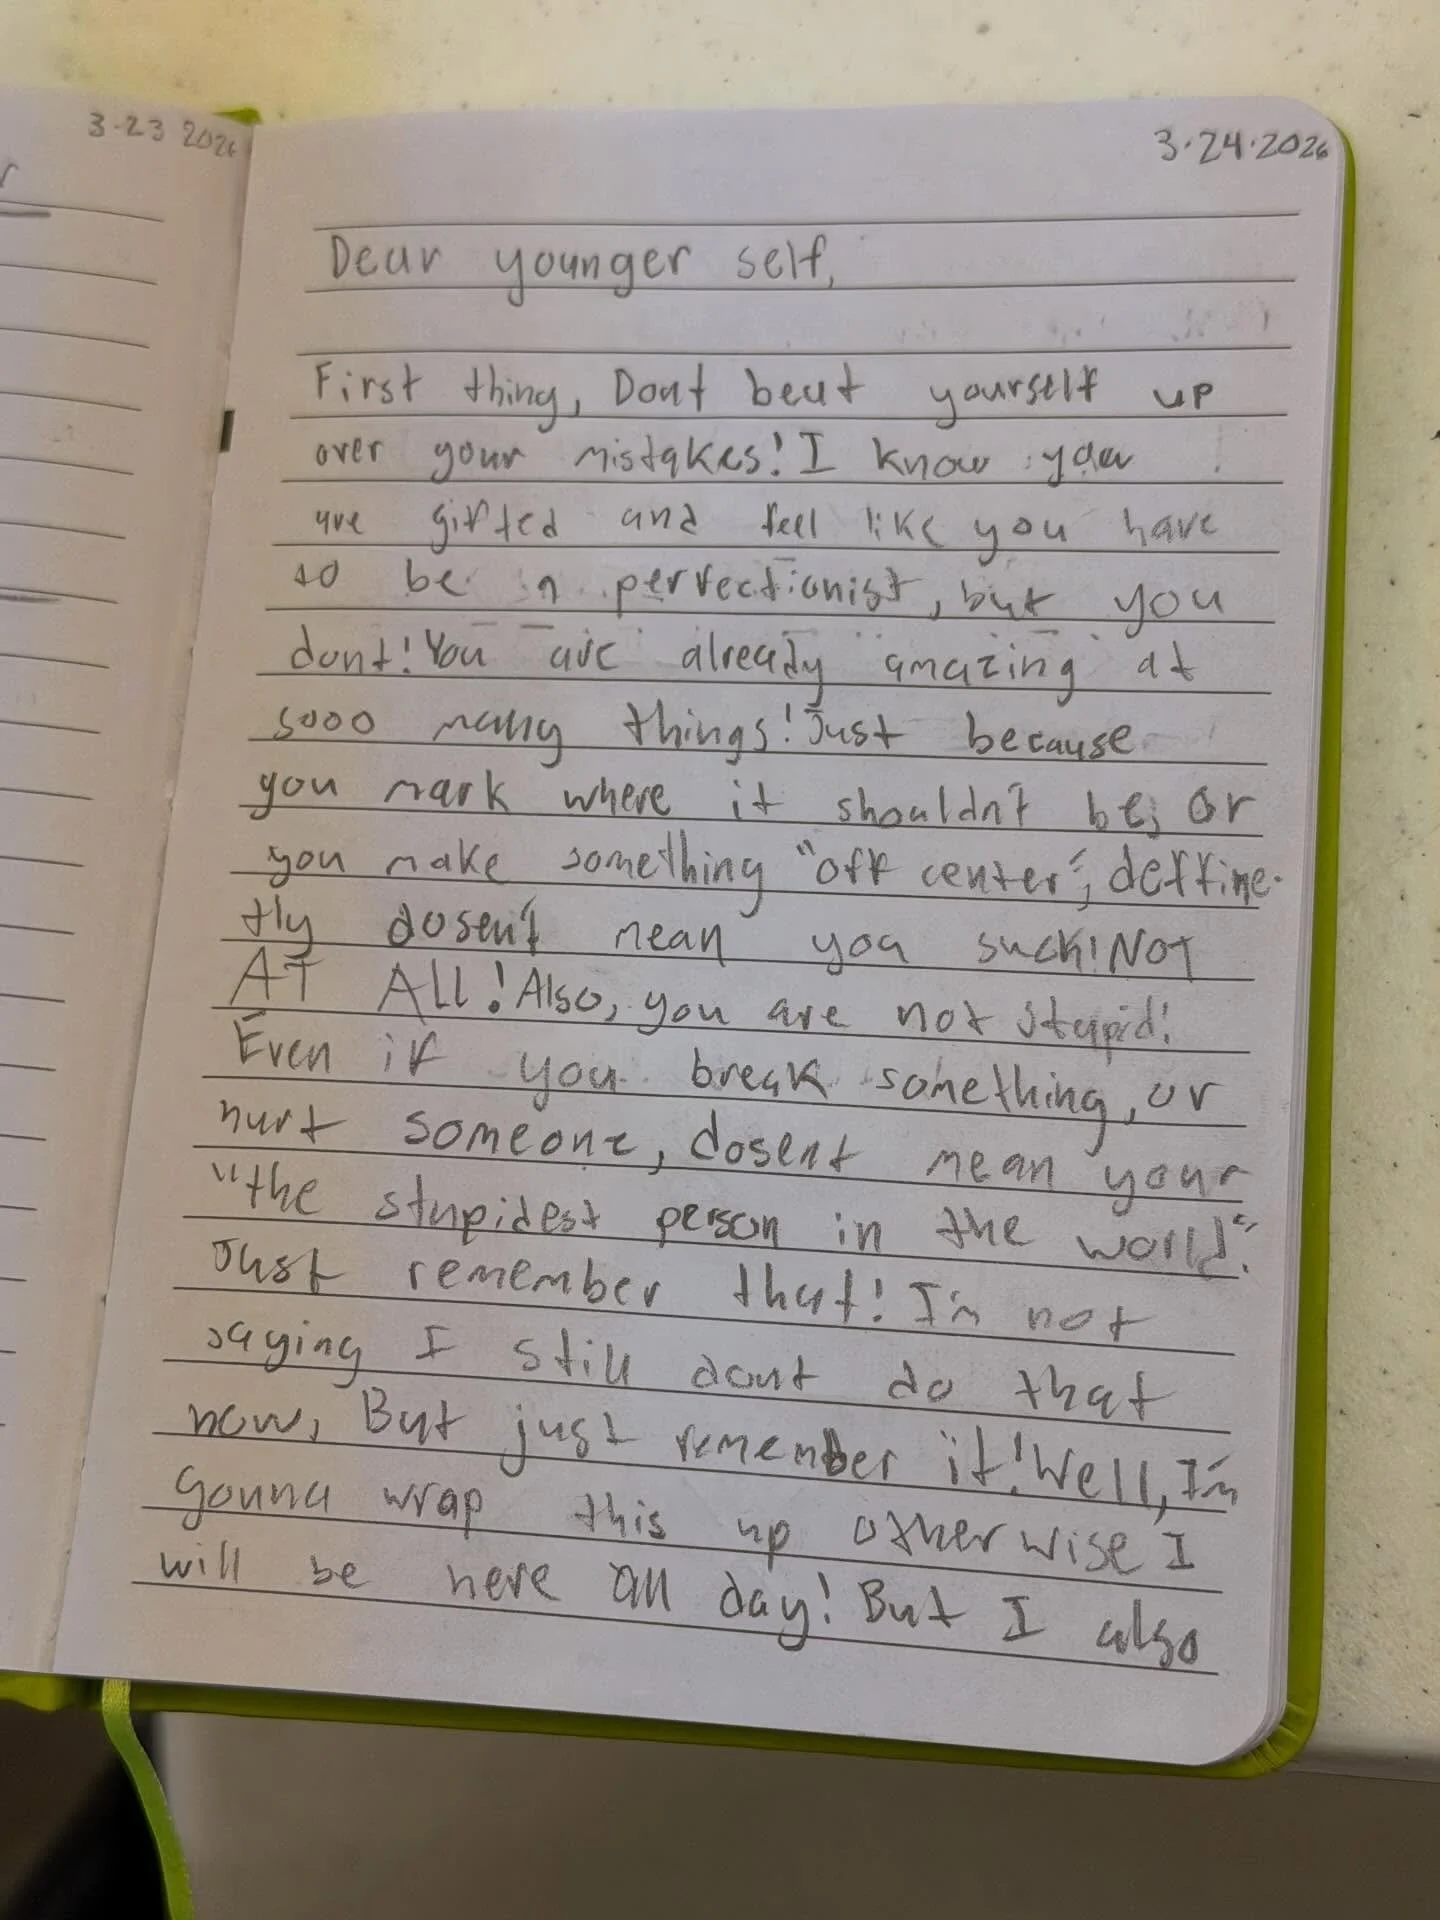 3-23 2026
3.24.2026
Dear younger self,
First thing, Dont beat yourself up
over your mistakes! I know you
are gifted and feel like you have
to be a perfectionist, but you
dont! You are already amazing at
sooo many things! Just because
you mark where it shouldn't be, or
you make something "off center", deffine-
tly dosen't mean you suck! NOT
AT All! Also, you are not stupid!
Even if you break something, or
hurt someone, dosent mean your
"the stupidest person in the world".
Just remember that! I'm not
saying I still dont do that
now, But just remember it! Well, I'm
gonna wrap this up otherwise I
will be here all day! But I also